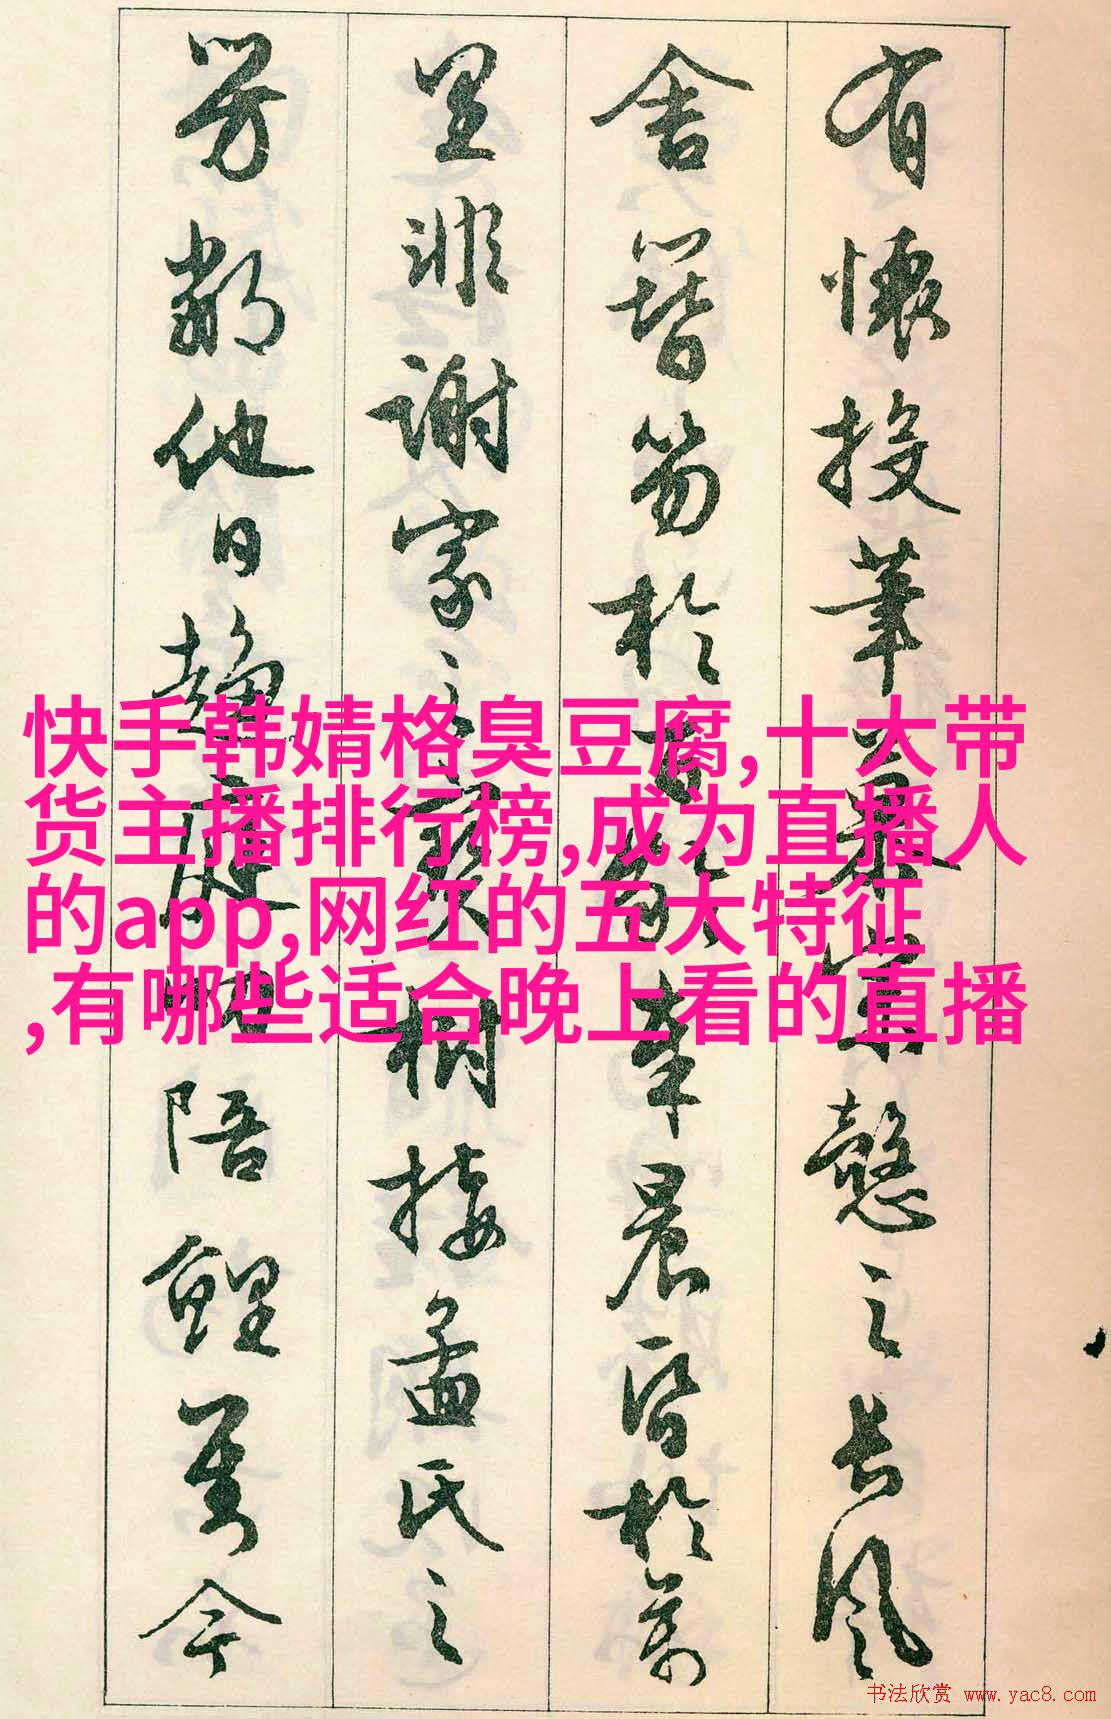 有懷投筆慕宗慤之長風
舍簪笏於百齡奉晨昏於萬
里非謝家之寶樹接孟氏之
芳鄰他日趨庭叨陪鯉對今
快手韩婧格臭豆腐,十大带
货主播排行榜,成为直播人
的app,网红的五大特征
,有哪些适合晚上看的直播
书法欣赏 www.yac8.com